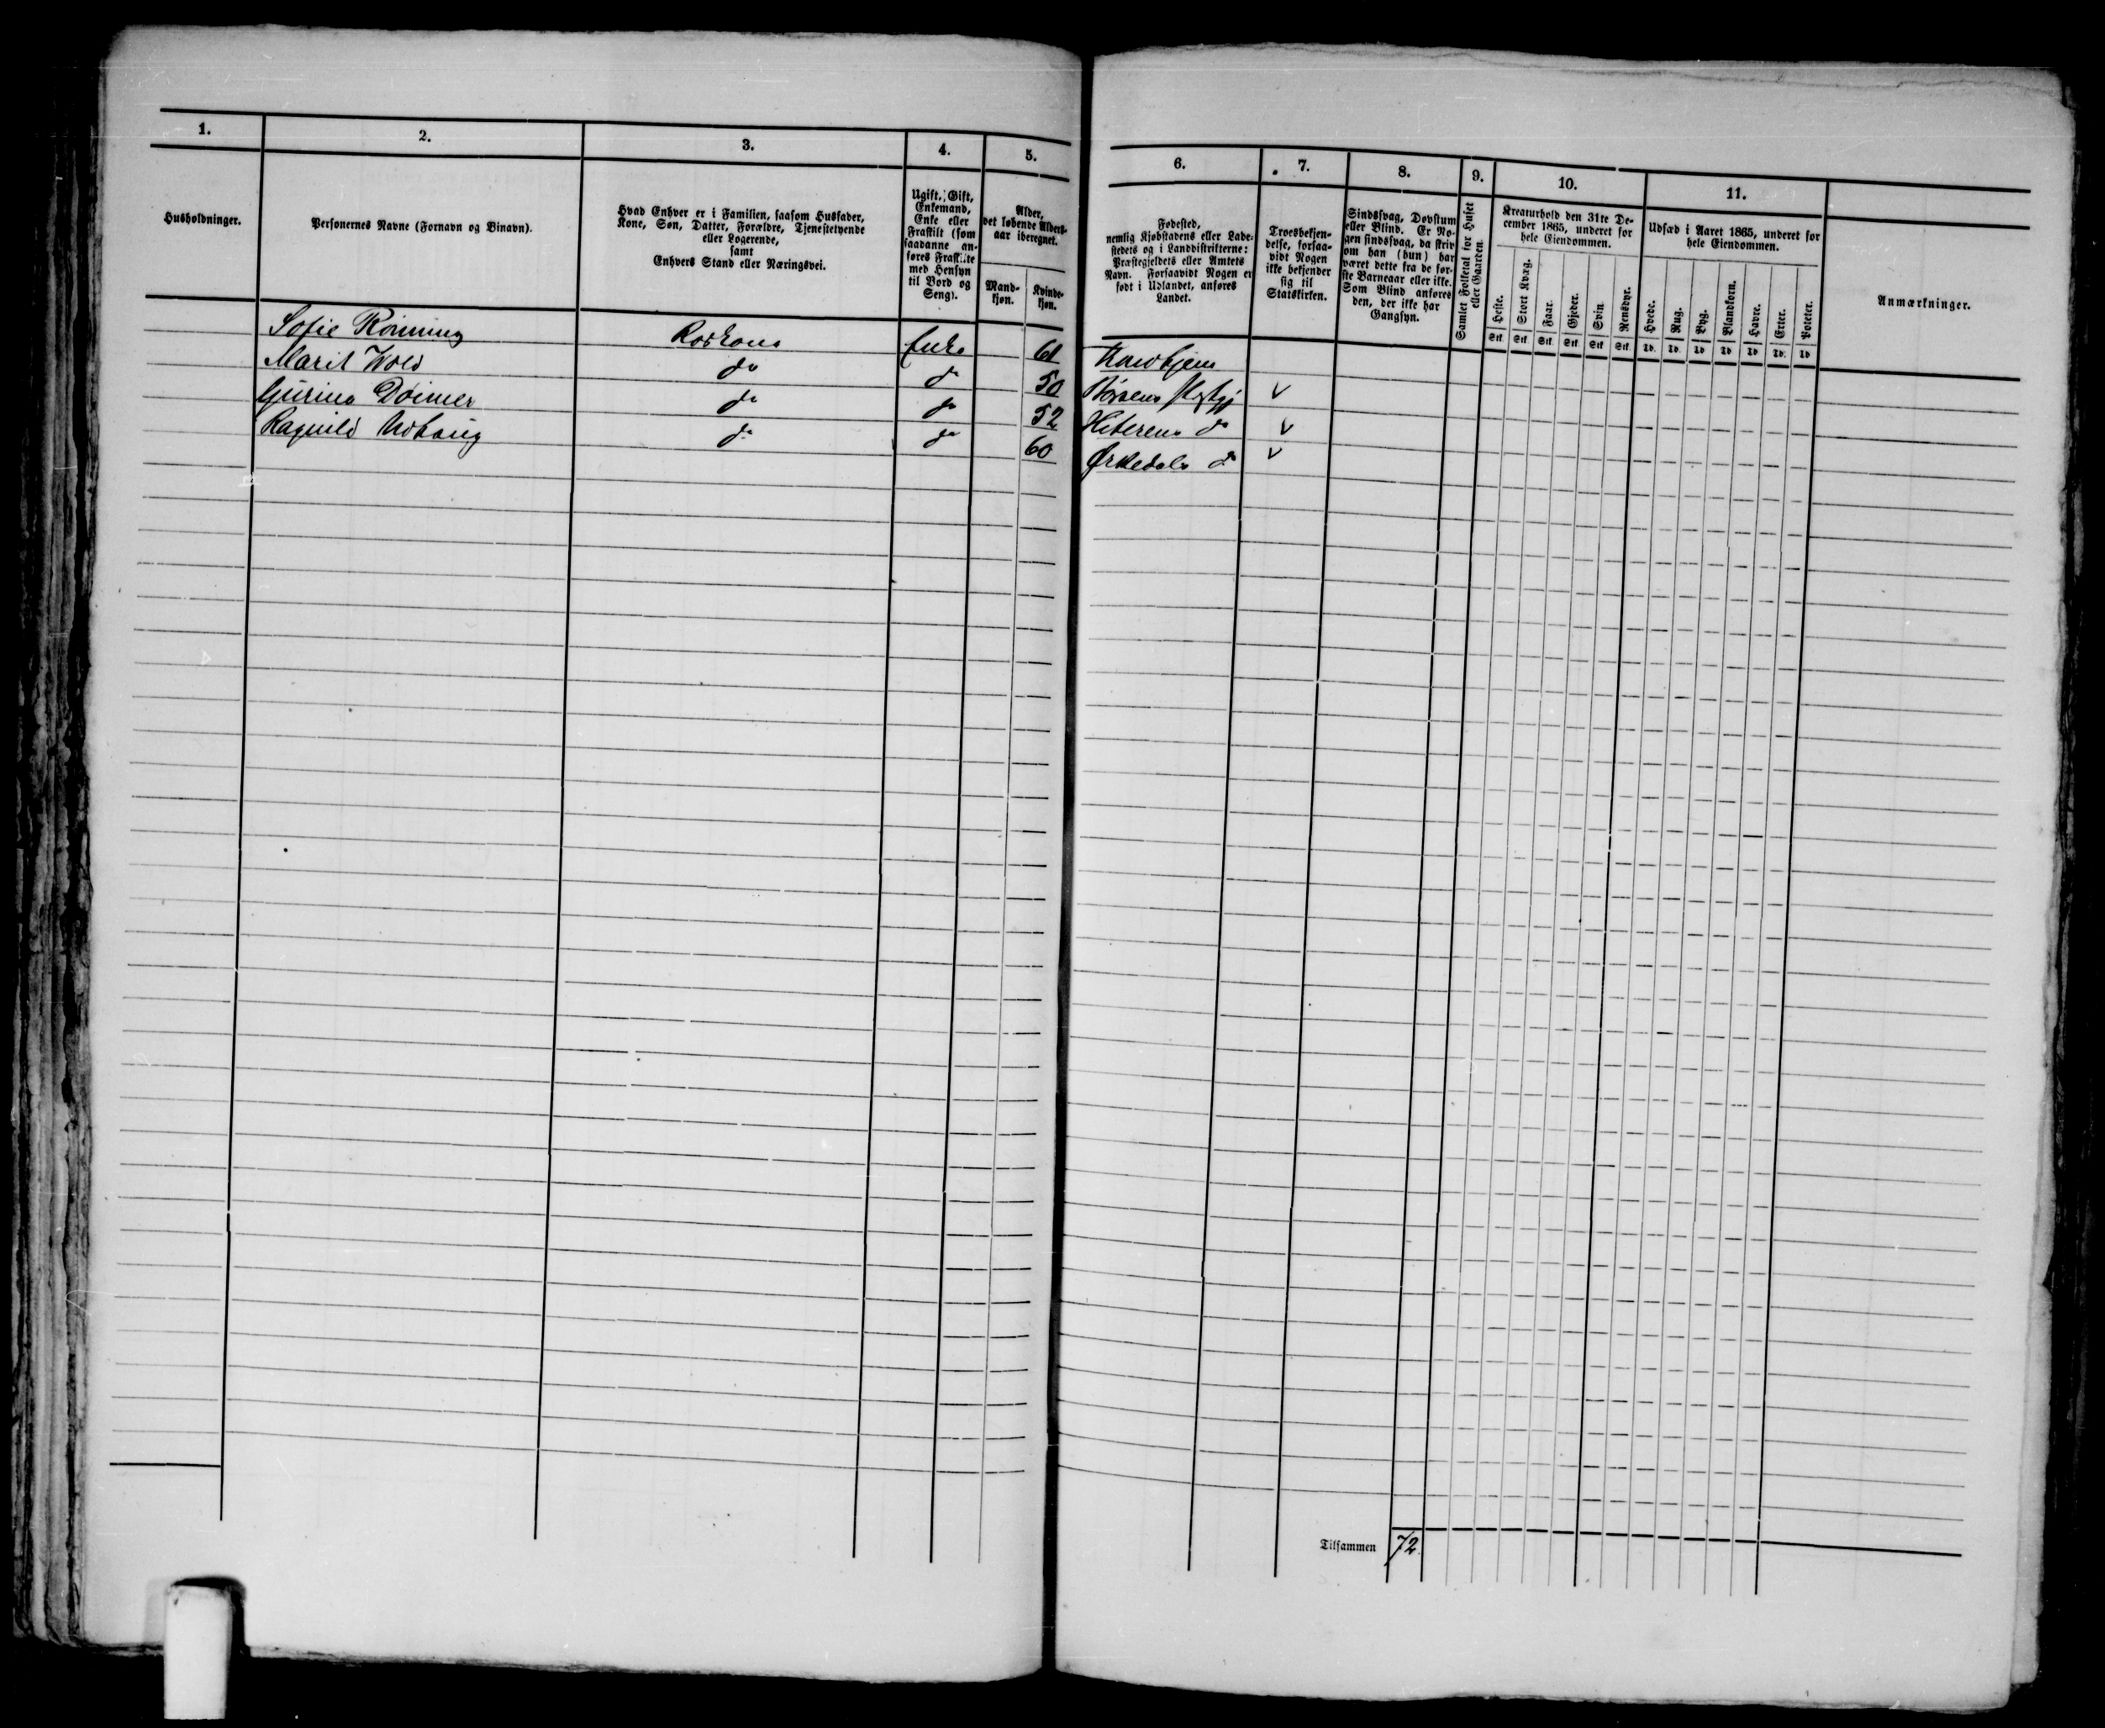 1. 2. 3. 4. 5.
Husholdninger.
Personernes Navne (Fornavn og Binavn).
Hvad Enhver er i Familien, saasom Husfader,
Kone, Søn, Datter, Forældre, Tjenestetyende
eller Logerende,
samt
Enhvers Stand eller Næringsvei.
Ugift, Gift,
Enkemand,
Enke eller
Fraskilt (som
saadanne an-
føres Fraskilte
med Hensyn
til Bord og
Seng).
Alder,
det løbende Alders-
aar iberegnet.
Mand-
kjøn.
Kvinde-
kjøn.
Sofie Rönning Enke 61
Marit Wold do do 50
Gurine do do 52
Ragnild do do 60
6. 7. 8. 9. 10. 11.
Fødested,
nemlig Kjøbstadens eller Lade-
stedets og i Landdistrikterne:
Præstegjeldets eller Amtets
Navn. Forsaavidt Nogen er
født i Udlandet, anføres
Landet.
Troesbekjen-
delse, forsaa-
vidt Nogen
ikke bekjender
sig til
Statskirken.
Sindssvag, Døvstum
eller Blind. Er No-
gen sindssvag, da skriv
om han (hun) har
været dette fra de før-
ste Barneaar eller ikke.
Som Blind anføres
den, der ikke har
Gangsyn.
Samlet Folketal for Huset
eller Gaarden.
Kreaturhold den 31te De-
cember 1865, underet for
hele Eiendommen.
Heste. Stort Kvæg. Faar. Gjeder. Svin. Rensdyr.
Stk. Stk. Stk. Stk. Stk. Stk.
Udsæd i Aaret 1865, underet for
hele Eiendommen.
Hvede. Rug. Byg. Blandkorn. Havre. Erter. Poteter.
Td. Td. Td. Td. Td. Td. Td.
Anmærkninger.
Trondhjem
Börsens v
Hiterens do v
Ørkedals do v
Tilsammen 72.